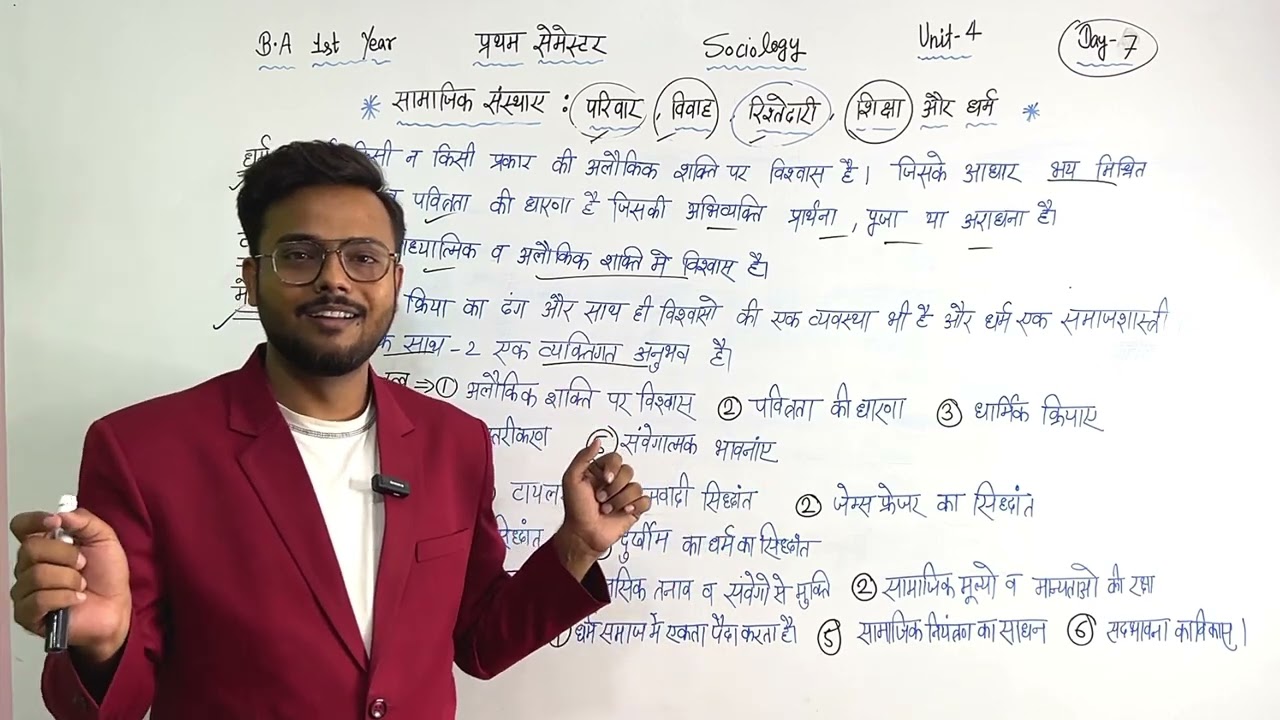 B.A 1st Year प्रथम सेमेस्टर Sociology Unit-4 Day-7
* सामाजिक संस्थाए : परिवार, विवाह, रिश्तेदारी, शिक्षा और धर्म *
किसी न किसी प्रकार की अलौकिक शक्ति पर विश्वास है। जिसके आधार भय मिश्रित
व पवित्रता की धारणा है जिसकी अभिव्यक्ति प्रार्थना, पूजा या अराधना है।
व अलौकिक शक्ति मे विश्वास है।
क्रिया का ढंग और साथ ही विश्वासो की एक व्यवस्था भी है और धर्म एक समाजशास्त्री
साथ-2 एक व्यक्तिगत अनुभव है।
⇒ ① अलौकिक शक्ति पर विश्वास ② पवित्रता की धारणा ③ धार्मिक क्रियाए
⑤ संवेगात्मक भावनांए
सिध्दांत ② जेम्स फ्रेजर का सिध्दांत
सिध्दांत दुर्खीम का धर्म का सिध्दांत
तनाव व संवेगो से मुक्ति ② सामाजिक मूल्यो व मान्यताओ की रक्षा
धर्म समाज मे एकता पैदा करता है। ⑤ सामाजिक नियंत्रण का साधन ⑥ सदभावना का विकास।